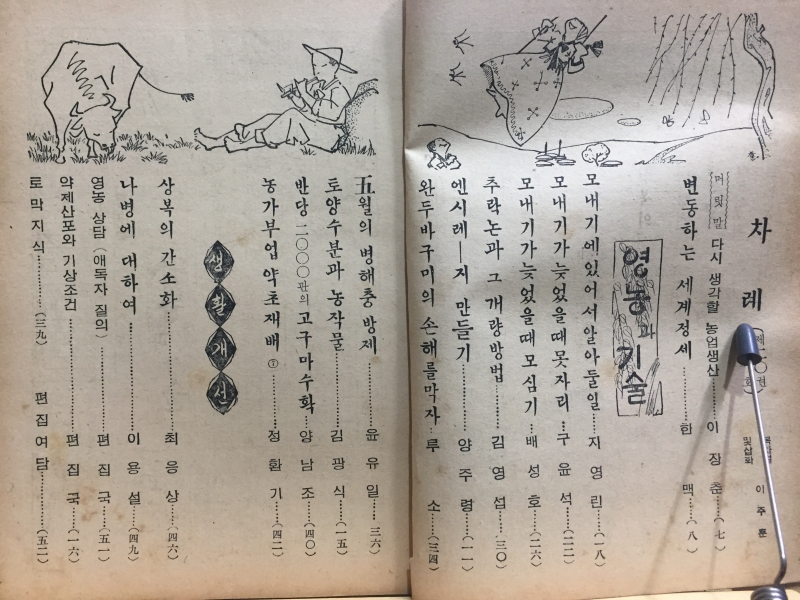 차례
머릿말 다시 생각할 농업생산……이장춘……(七)
변동하는 세계정세……한맥……(八)
영농과 기술
모내기에있어서알아둘일……지영린……(一八)
모내기가늦었을때못자리……구윤석……(二二)
모내기가늦었을때모심기……배성호……(二六)
추락논과 그 개량방법……김영섭……(三〇)
엔시레—지 만들기……양주령……(一一)
완두바구미의 손해를막자……루소……(三四)
五월의 병해충 방제……윤유일……(三六)
토양수분과 농작물……김광식……(一五)
반당 二〇〇〇판의 고구마수확……양남조……(四〇)
농가부업 약초재배 ①……정환기……(四二)
생활개선
상복의 간소화……최응상……(四六)
나병에 대하여……이용설……(四九)
영농 상담 (애독자 질의)……편집국……(五一)
약제산포와 기상조건……편집국……(一六)
토막지식……(三九) 편집여담……(五二)
및삽화 이주훈